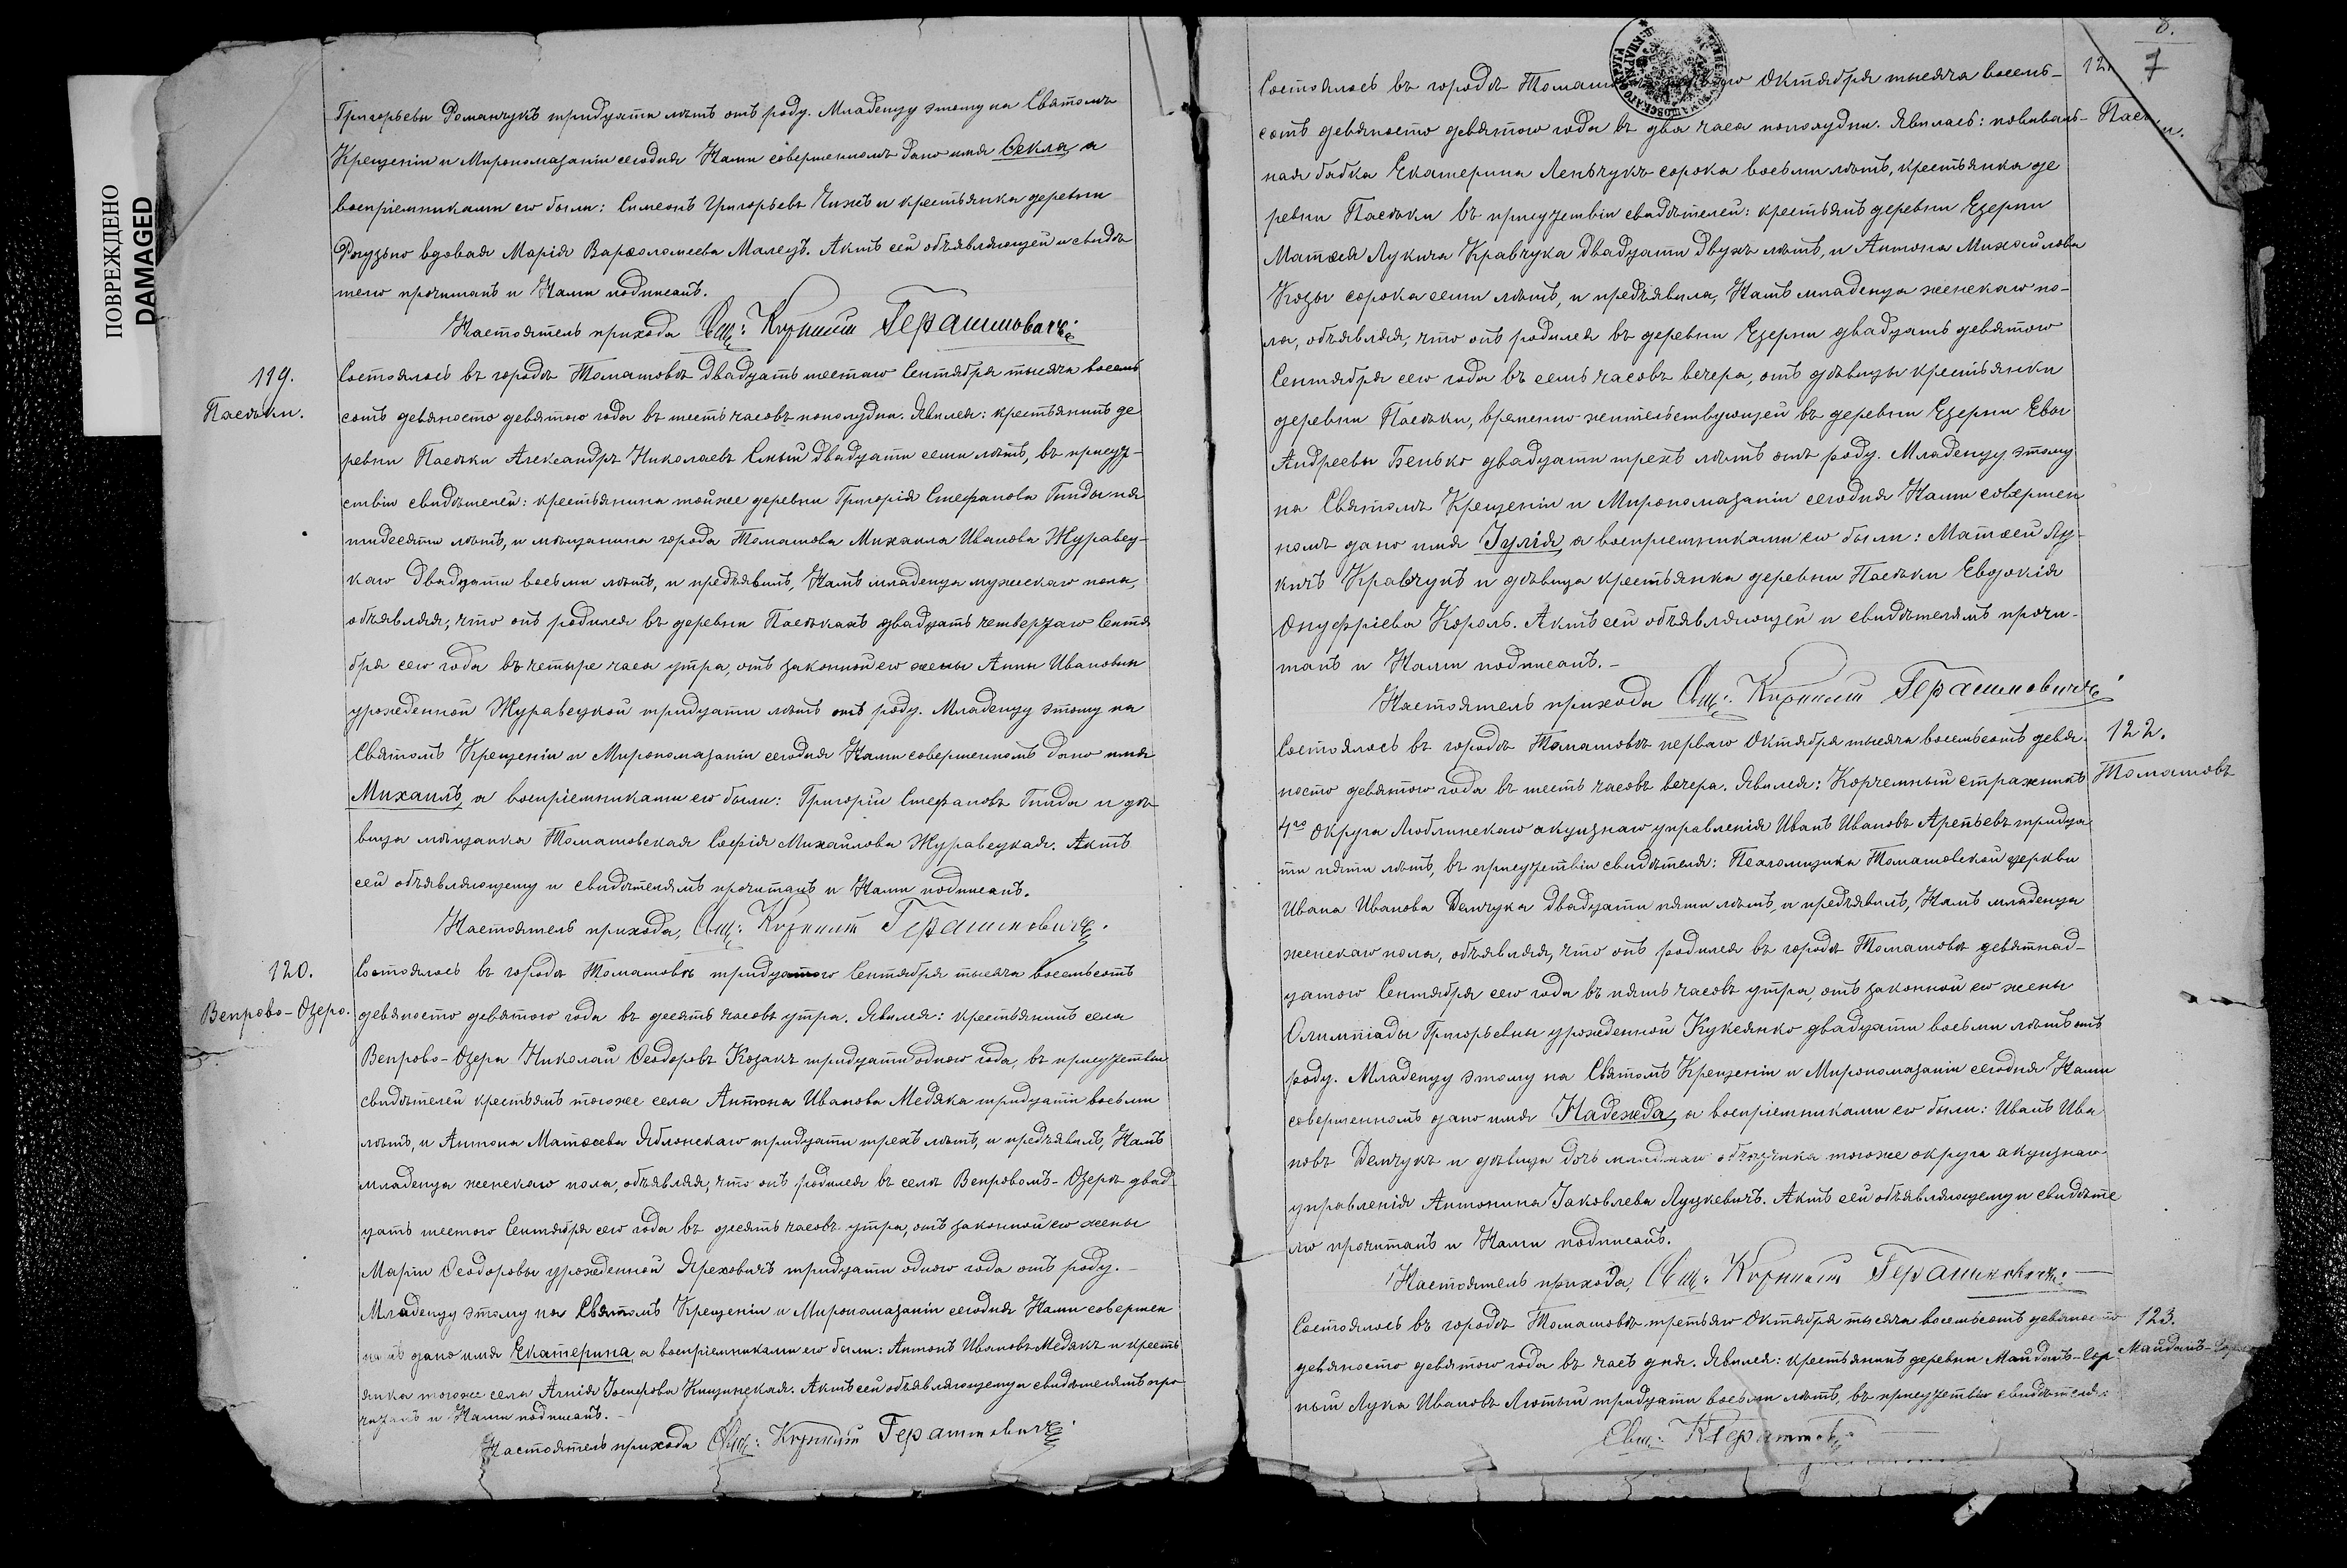 ПОВРЕЖДЕНО
DAMAGED
Григорьевы Романчукъ тридцати лѣтъ отъ роду. Младенцу этому на Святомъ
Крещеніи и Миропомазаніи сегодня Нами совершенномъ дано имя Ѳекла, а
воспріемниками его были: Симеонъ Григорьевъ Чижъ и крестьянка деревни
Рогузьно вдовая Марія Варѳоломеева Малецъ. Актъ сей объявляющей и свидѣ
телю прочитанъ и Нами подписанъ.
Настоятель прихода Свщ: Кириллъ Герашимовичъ.
119.
Пасѣки.
Состоялось въ городѣ Томашовѣ двадцать шестаго Сентября тысяча восемь
сотъ девяносто девятого года въ шесть часовъ пополудни. Явился: крестьянинъ де
ревни Пасѣки Александръ Николаевъ Смый двадцати семи лѣтъ, въ присут-
ствіи свидѣтелей: крестьянина тойже деревни Григорія Стефанова Гинды пя
тидесяти лѣтъ, и мѣщанина города Томашова Михаила Иванова Журавец-
каго двадцати восьми лѣтъ, и предъявилъ, Намъ младенца мужескаго пола,
объявляя, что онъ родился въ деревни Пасѣкахъ двадцать четвертаго Сентя
бря сего года въ четыре часа утра, отъ законной его жены Анны Ивановны
урожденной Журавецкой тридцати лѣтъ отъ роду. Младенцу этому на
Святомъ Крещеніи и Миропомазаніи сегодня Нами совершенномъ дано имя
Михаилъ, а воспріемниками его были: Григорій Стефановъ Гинда и дѣ
вица мѣщанка Томашовская Софія Михайлова Журавецкая. Актъ
сей объявляющему и свидѣтелямъ прочитанъ и Нами подписанъ.
Настоятель прихода, Свщ: Кириллъ Герашимовичъ.
120.
Вепрово-Озеро.
Состоялось въ городѣ Томашовѣ тридцатого Сентября тысяча восемьсотъ
девяносто девятого года въ десять часовъ утра. Явился: крестьянинъ села
Вепрово-Озера Николай Ѳеодоровъ Козакъ тридцати одного года, въ присутствіи
свидѣтелей крестьянъ тогоже села Антона Иванова Медяка тридцати восьми
лѣтъ, и Антона Матѳеева Яблонскаго тридцати трехъ лѣтъ, и предъявилъ, Намъ
младенца женскаго пола, объявляя, что онъ родился въ селѣ Вепровомъ-Озерѣ двад
цать шестого Сентября сего года въ десять часовъ утра, отъ законной его жены
Маріи Ѳеодоровы урожденной Яреховичъ тридцати одного года отъ роду.-
Младенцу этому на Святомъ Крещеніи и Миропомазаніи сегодня Нами совершен
номъ дано имя Екатерина, а воспріемниками его были: Антонъ Ивановъ Медякъ и кресть
янка тогоже села Агнія Іосифова Кищинская. Актъ сей объявляющему и свидѣтелямъ про
читанъ и Нами подписанъ.-
Настоятель прихода Свщ: Кириллъ Герашимовичъ.
8.
7
121
Состоялось въ городѣ Октября тысяча восемь-
сотъ девяносто девятого года въ два часа пополудни. Явилась: повиваль-
ная бабка Екатерина Ленчукъ сорока восьми лѣтъ, крестьянка де
ревни Пасѣки въ присутствіи свидѣтелей: крестьянъ деревни Езерни
Матѳея Лукича Кравчука двадцати двухъ лѣтъ, и Антона Михайлова
Козы сорока семи лѣтъ, и предъявила, Намъ младенца женскаго по-
ла, объявляя, что онъ родился въ деревни Езерни двадцать девятого
Сентября сего года въ семь часовъ вечера, отъ дѣвицы крестьянки
деревни Пасѣки, временно-жительствующей въ деревни Езерни Евы
Андреевы Бенько двадцати трехъ лѣтъ отъ роду. Младенцу этому
на Святомъ Крещеніи и Миропомазаніи сегодня Нами совершен
номъ дано имя Іулія, а воспріемниками его были: Матѳей Лу-
кичъ Кравчукъ и дѣвица крестьянка деревни Пасѣки Евдокія
Онуфріева Король. Актъ сей объявляющей и свидѣтелямъ прочи-
танъ и Нами подписанъ.-
Настоятель прихода Свщ: Кириллъ Герашимовичъ
122.
Томашовъ
Состоялось въ городѣ Томашовѣ перваго Октября тысяча восемьсотъ девя-
носто девятого года въ шесть часовъ вечера. Явился: Корчемный стражникъ
4го Округа Люблинскаго акцизнаго управленія Иванъ Ивановъ Арепьевъ тридца
ти пяти лѣтъ, въ присутствіи свидѣтеля: Псаломщика Томашовской церкви
Ивана Иванова Демчука двадцати пяти лѣтъ, и предъявилъ, Намъ младенца
женскаго пола, объявляя, что онъ родился въ городѣ Томашовѣ девятнад-
цатого Сентября сего года въ пять часовъ утра, отъ законной его жены
Олимпіады Григорьевны урожденной Куксянко двадцати восьми лѣтъ отъ
роду. Младенцу этому на Святомъ Крещеніи и Миропомазаніи сегодня Нами
совершенномъ дано имя Надежда, а воспріемниками его были: Иванъ Ива
новъ Демчукъ и дѣвица дочь младшаго объѣзчика тогоже округа акцизнаго
управленія Антонина Іаковлева Луцкевичъ. Актъ сей объявляющему и свидѣте
лю прочитанъ и Нами подписанъ.
Настоятель прихода, Свщ: Кириллъ Герашимовичъ.
123.
Майданъ-
Состоялось въ городѣ Томашовѣ третьяго Октября тысяча восемьсотъ девяносто
девяносто девятого года въ часъ дня. Явился: крестьянинъ деревни Майданъ-Сор-
ный Лука Ивановъ Лютый тридцати восьми лѣтъ, въ присутствіи свидѣтеля:
Свщ: